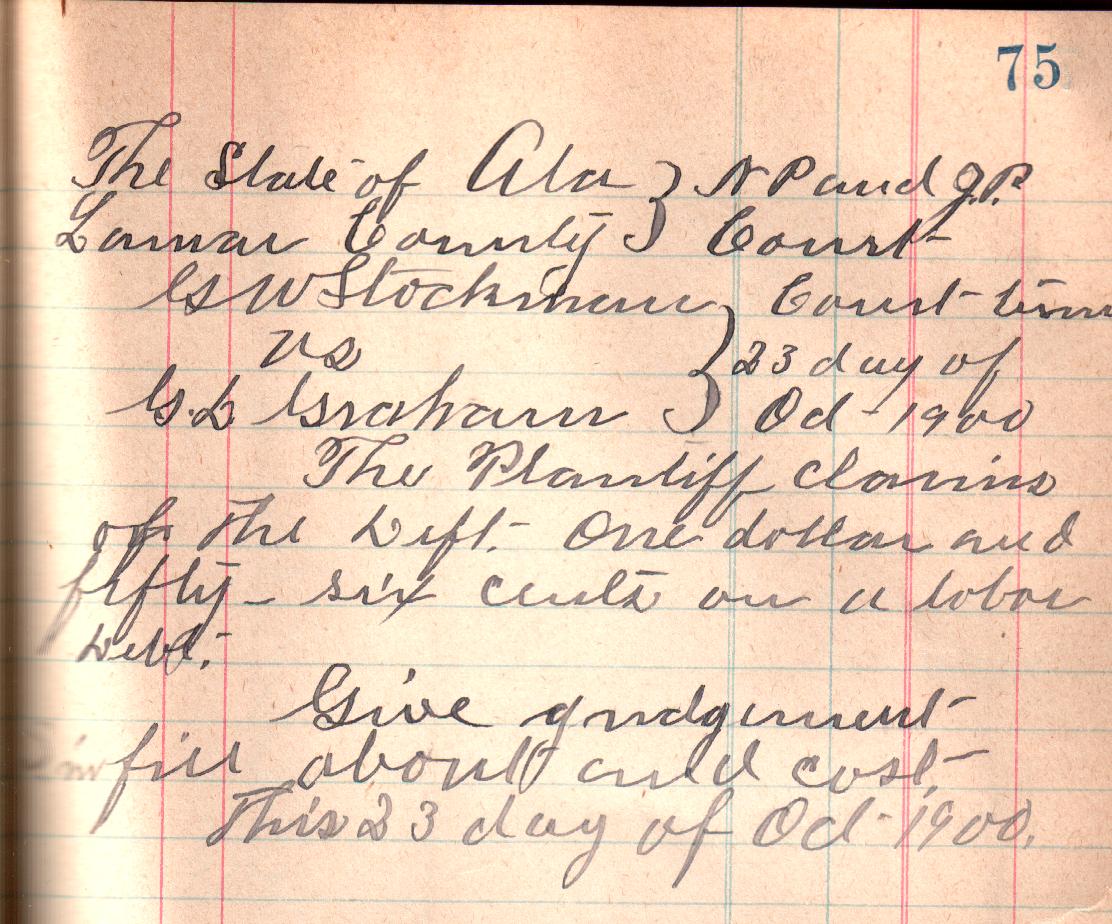 75
The State of Ala } N P and J.P.
Lamar County } Court
G W Stockman } Court term
vs } 23 day of
G. L Graham } Oct 1900
The Plantiff claims
of the Deft. One dollar and
fifty-six cents on a labor
Debt.
Give judgement
for about and cost
This 23 day of Oct 1900.